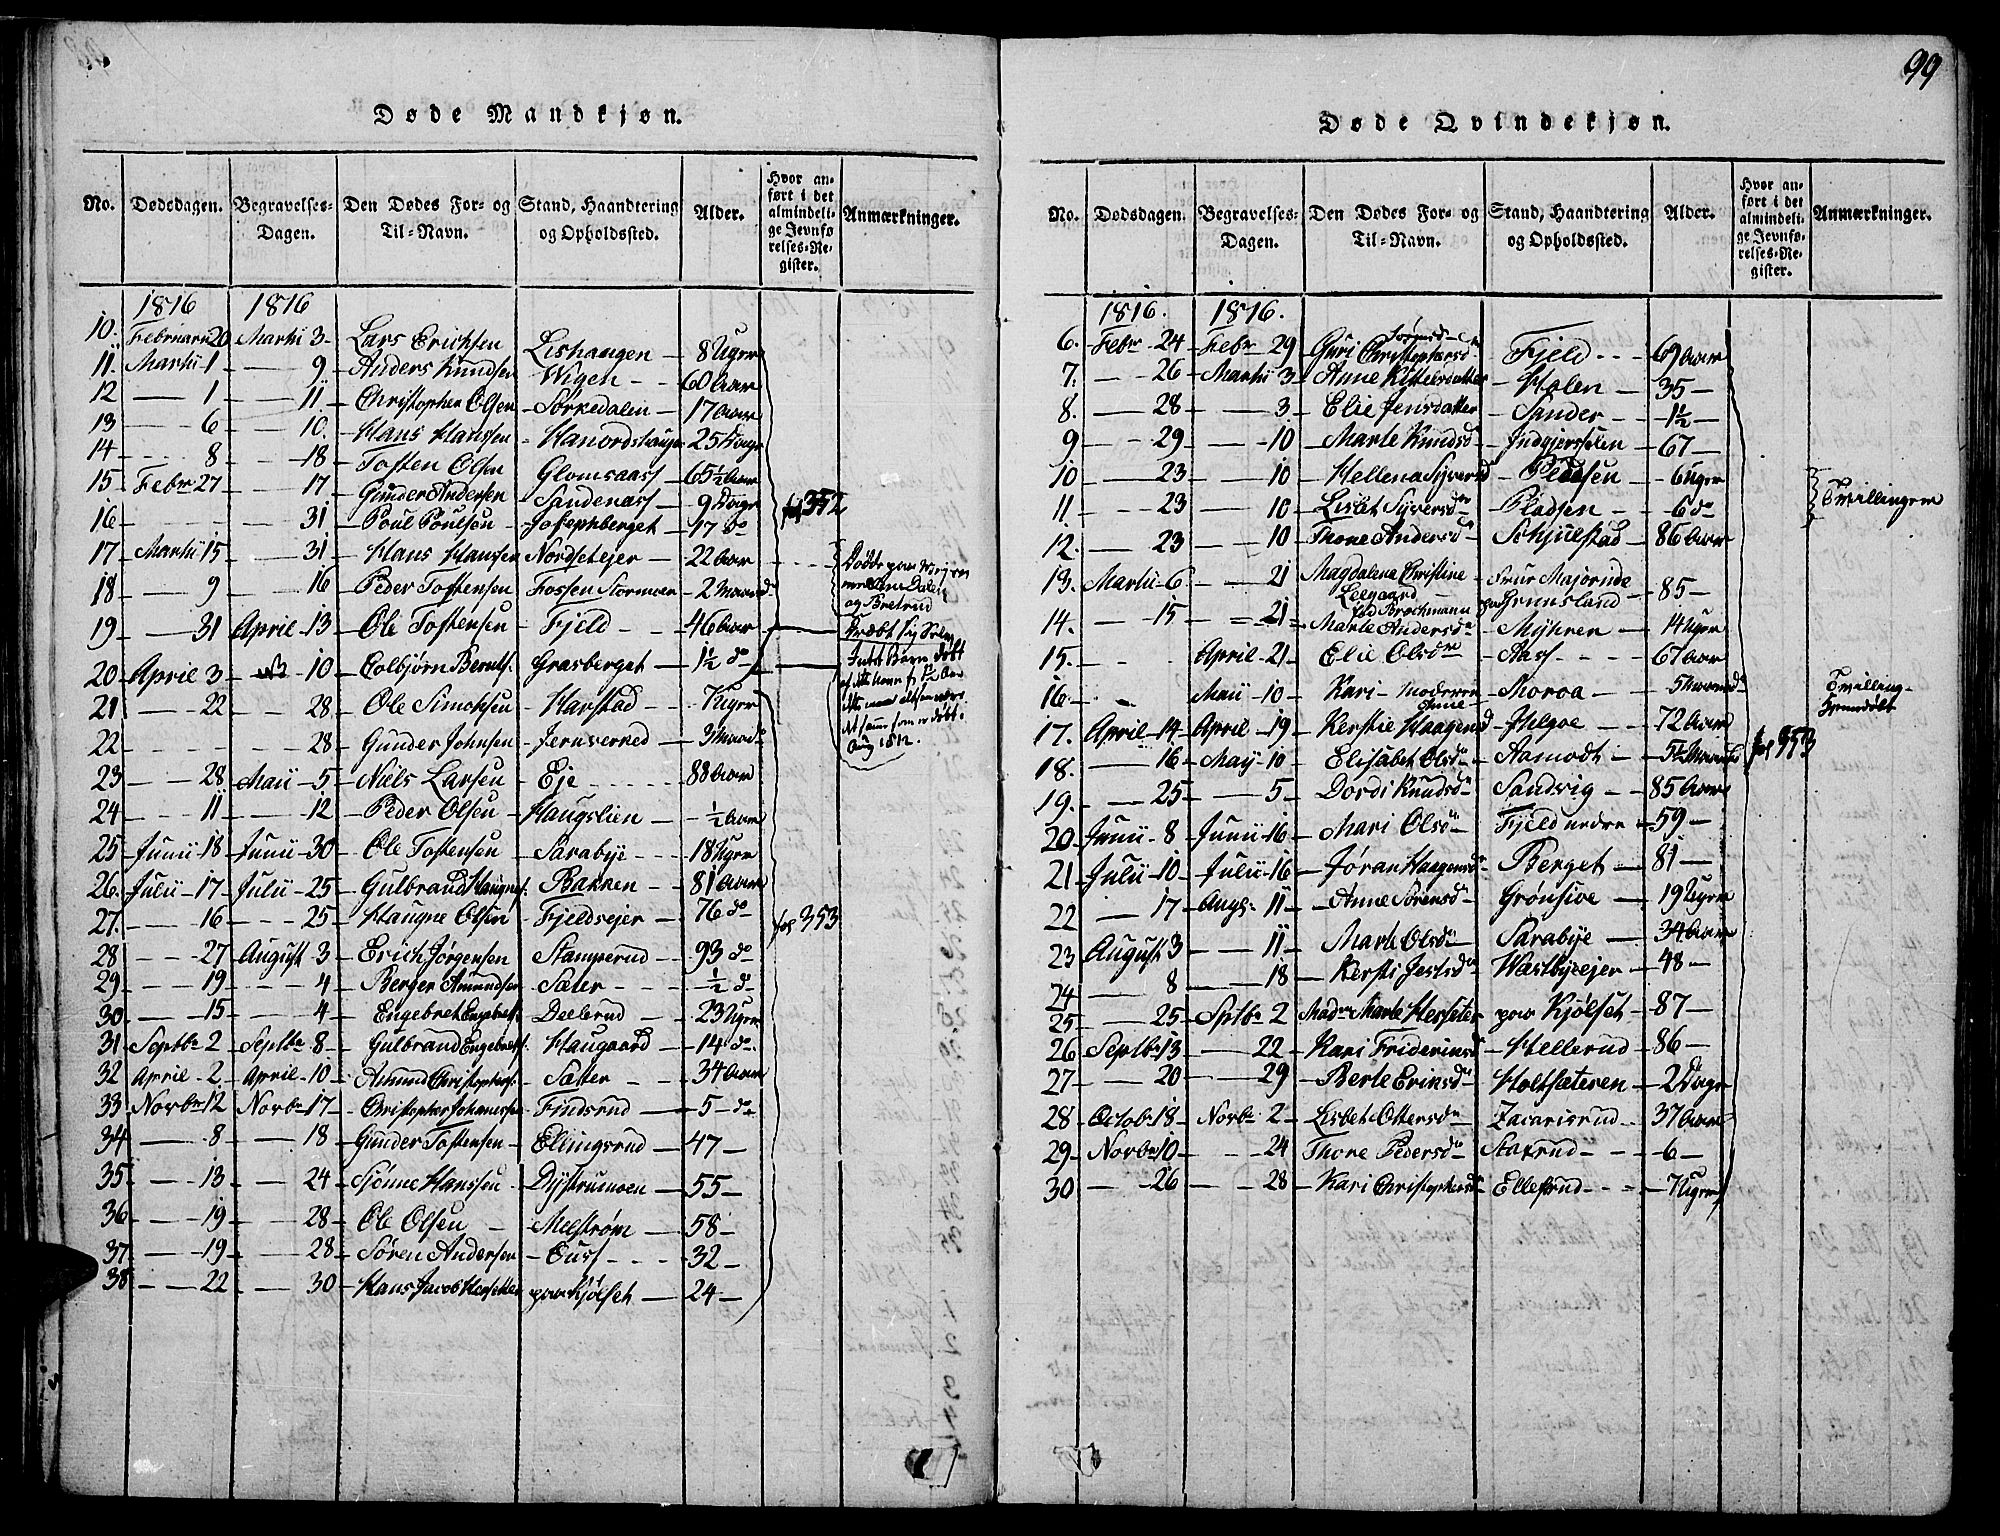 99
Døde Mandkjøn.
No. Dødsdagen. Begravelses-Dagen. Den Dødes For- og Til-Navn. Stand, Haandtering og Opholdssted. Alder. Hvor anført i det almindelige Jevnførelses-Register. Anmærkninger.
1816 1816
10. Februari 20 Martii 3 Lars Erichsen Lishaugen 8 Uger
11. Martii 1 — 9 Anders Knudsen Wigen 60 Aar
12 — 1 — 11 Christopher Olsen Sørkedalen 17 Aar
13 — 6 — 10. Hans Hanssen Hanordshaugen 25 Dage
14 — 8 — 18 Tosten Olsen Glomsaass 65½ Aar
15 Febr 27 — 17 Gunder Andersen Sandenass 9 Dage
16 — — 31 Poul Poulsen Josephberget 17 do fol 352
17 Martii 15 — 31 Hans Hansen Nordsetejer 22 Aar Døde paa Vejen mellem Dalen og Bretrud
18 — 9 — 16 Peder Tostensen Fossen Stormoen 2 Maand
19 — 31 April 13 Ole Tostensen Fjeld 46 Aar Dræbt sig Selv
20 April 3 — 10 Colbjørn Bernts. Grasberget 1½ do Intet Barn døbt af dette Navn Aug 1812.
21 — 22 — 28 Ole Simensen Harstad 7 Uger
22 — — 28 Gunder Johnsen Jernverked 3 Maand
23 — 28 Maii 5 Niels Larsen Eje 88 Aar
24 — 11 — 12 Peder Olsen Haugslien ½ Aar
25 Junii 18 Junii 30 Ole Tostensen Sarabye 18 Uger
26. Julii 17 Julii 25 Gulbrand Haugnes. Bakken 81 Aar
27. — 16 — 25 Haugne Olsen Fjeldsejer 76 do fol 353
28 — 27 August 3 Erich Jørgensen Stamperud 93 do
29 — 19 — 4 Berger Amundsen Sæter ½ do
30 — 15 — 4 Engebret Engebrets. Deelerud 23 Uger
31 Septbr 2 Septbr 8 Gulbrand Engebrets. Haugaard 14 do.
32 April 2 April 10 Amund Christophers. Sætter 34 Aar
33 Novbr 12 Novbr 17 Christopher Johannesen Findsrud 5 do
34 — 8 — 18 Gunder Tostensen Ellingsrud 47
35 — 13 — 24 Sjønne Hanssen Dystrumoen 55
36 — 19 — 28 Ole Olsen Melstrøm 58
37 — 19 — 28 Søren Andersen Euss 32
38 — 22 — 30 Hans Jacob Hersetter paa Kjølset 24
Døde Qvindekjøn.
No. Dødsdagen. Begravelses-Dagen. Den Dødes For- og Til-Navn. Stand, Haandtering og Opholdssted. Alder. Hvor anført i det almindelige Jevnførelses-Register. Anmærkninger.
1816. 1816.
6. Febr 24 Febr 29 Guri Christophersd Fjeld 69 Aar
7. — 26 Martii 3 Anne Kittelsdatter Holen 35
8. — 28 — 3 Elie Jensdatter Sander 1½
9 — 29 — 10 Marte Knudsd Indgjerssolen 67
10 — 23 — 10 Hellena Syversd Pladsen 6 Uger Tvillinger
11 — 23 — 10 Lisbet Syversd Pladsen 6 do
12. — 23 — 10 Thone Andersd Schjulstad 86 Aar
13. Martii 6 — 21 Magdalena Christine Leegaard fød Brochmann Frue Majorinde paa Grunsland 85
14. — 15 — 21 Marte Andersd Myhren 14 Uger
15. — April 21 Elie Olsd Aass 67 Aar
16 — Maii 10 Kari Moderen Anne Moroa 5 Maand Tvilling
17. April 14 April 19 Kerstie Haagensd Helgoe 72 Aar fol 353
18. — 16 May 10 Elisabet Olsd Aamodt 5½ Maaned
19. — 25 — 5 Dordi Knudsd Sandvig 85 Aar
20 Junii 8 Junii 16 Mari Olsd Fjeld nedre 59
21 Julii 10 Julii 16 Jøran Haagensd Berget 81
22 — 17 Augs. 11 Anne Sørensd Grønsioe 19 Uger
23 August 3 — 11 Marte Olsd Sarabye 34 Aar
24 — 8 — 18 Kersti Jestsd Wæstbyeejer 48
25 — 25 Sptbr 2 Madm Marte Herseter paa Kjølset 87
26 Septbr 13 — 22 Kari Friderichsd Hellerud 86
27 — 20 — 29 Berte Erichsd Holtsæteren 2 Dage
28 Octob 18 Novbr 2 Lisbet Ottersd Zacarisrud 37 Aar
29 Novbr 10 — 24 Thore Pedersd Staxrud 6
30 — 26 — 28 Kari Christophersd Ellestrud 7 Uger